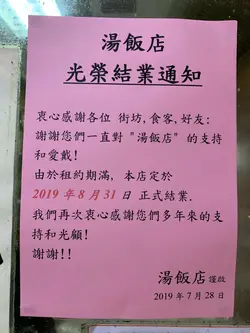 湯飯店
光榮結業通知
衷心感謝各位 街坊,食客,好友:
謝謝您們一直對 "湯飯店" 的支持
和愛戴!
由於租約期滿, 本店定於
2019 年 8 月 31 日 正式結業.
我們再次衷心感謝您們多年來的支
持和光顧!
謝謝!!
湯飯店 謹啟
2019 年 7 月 28 日